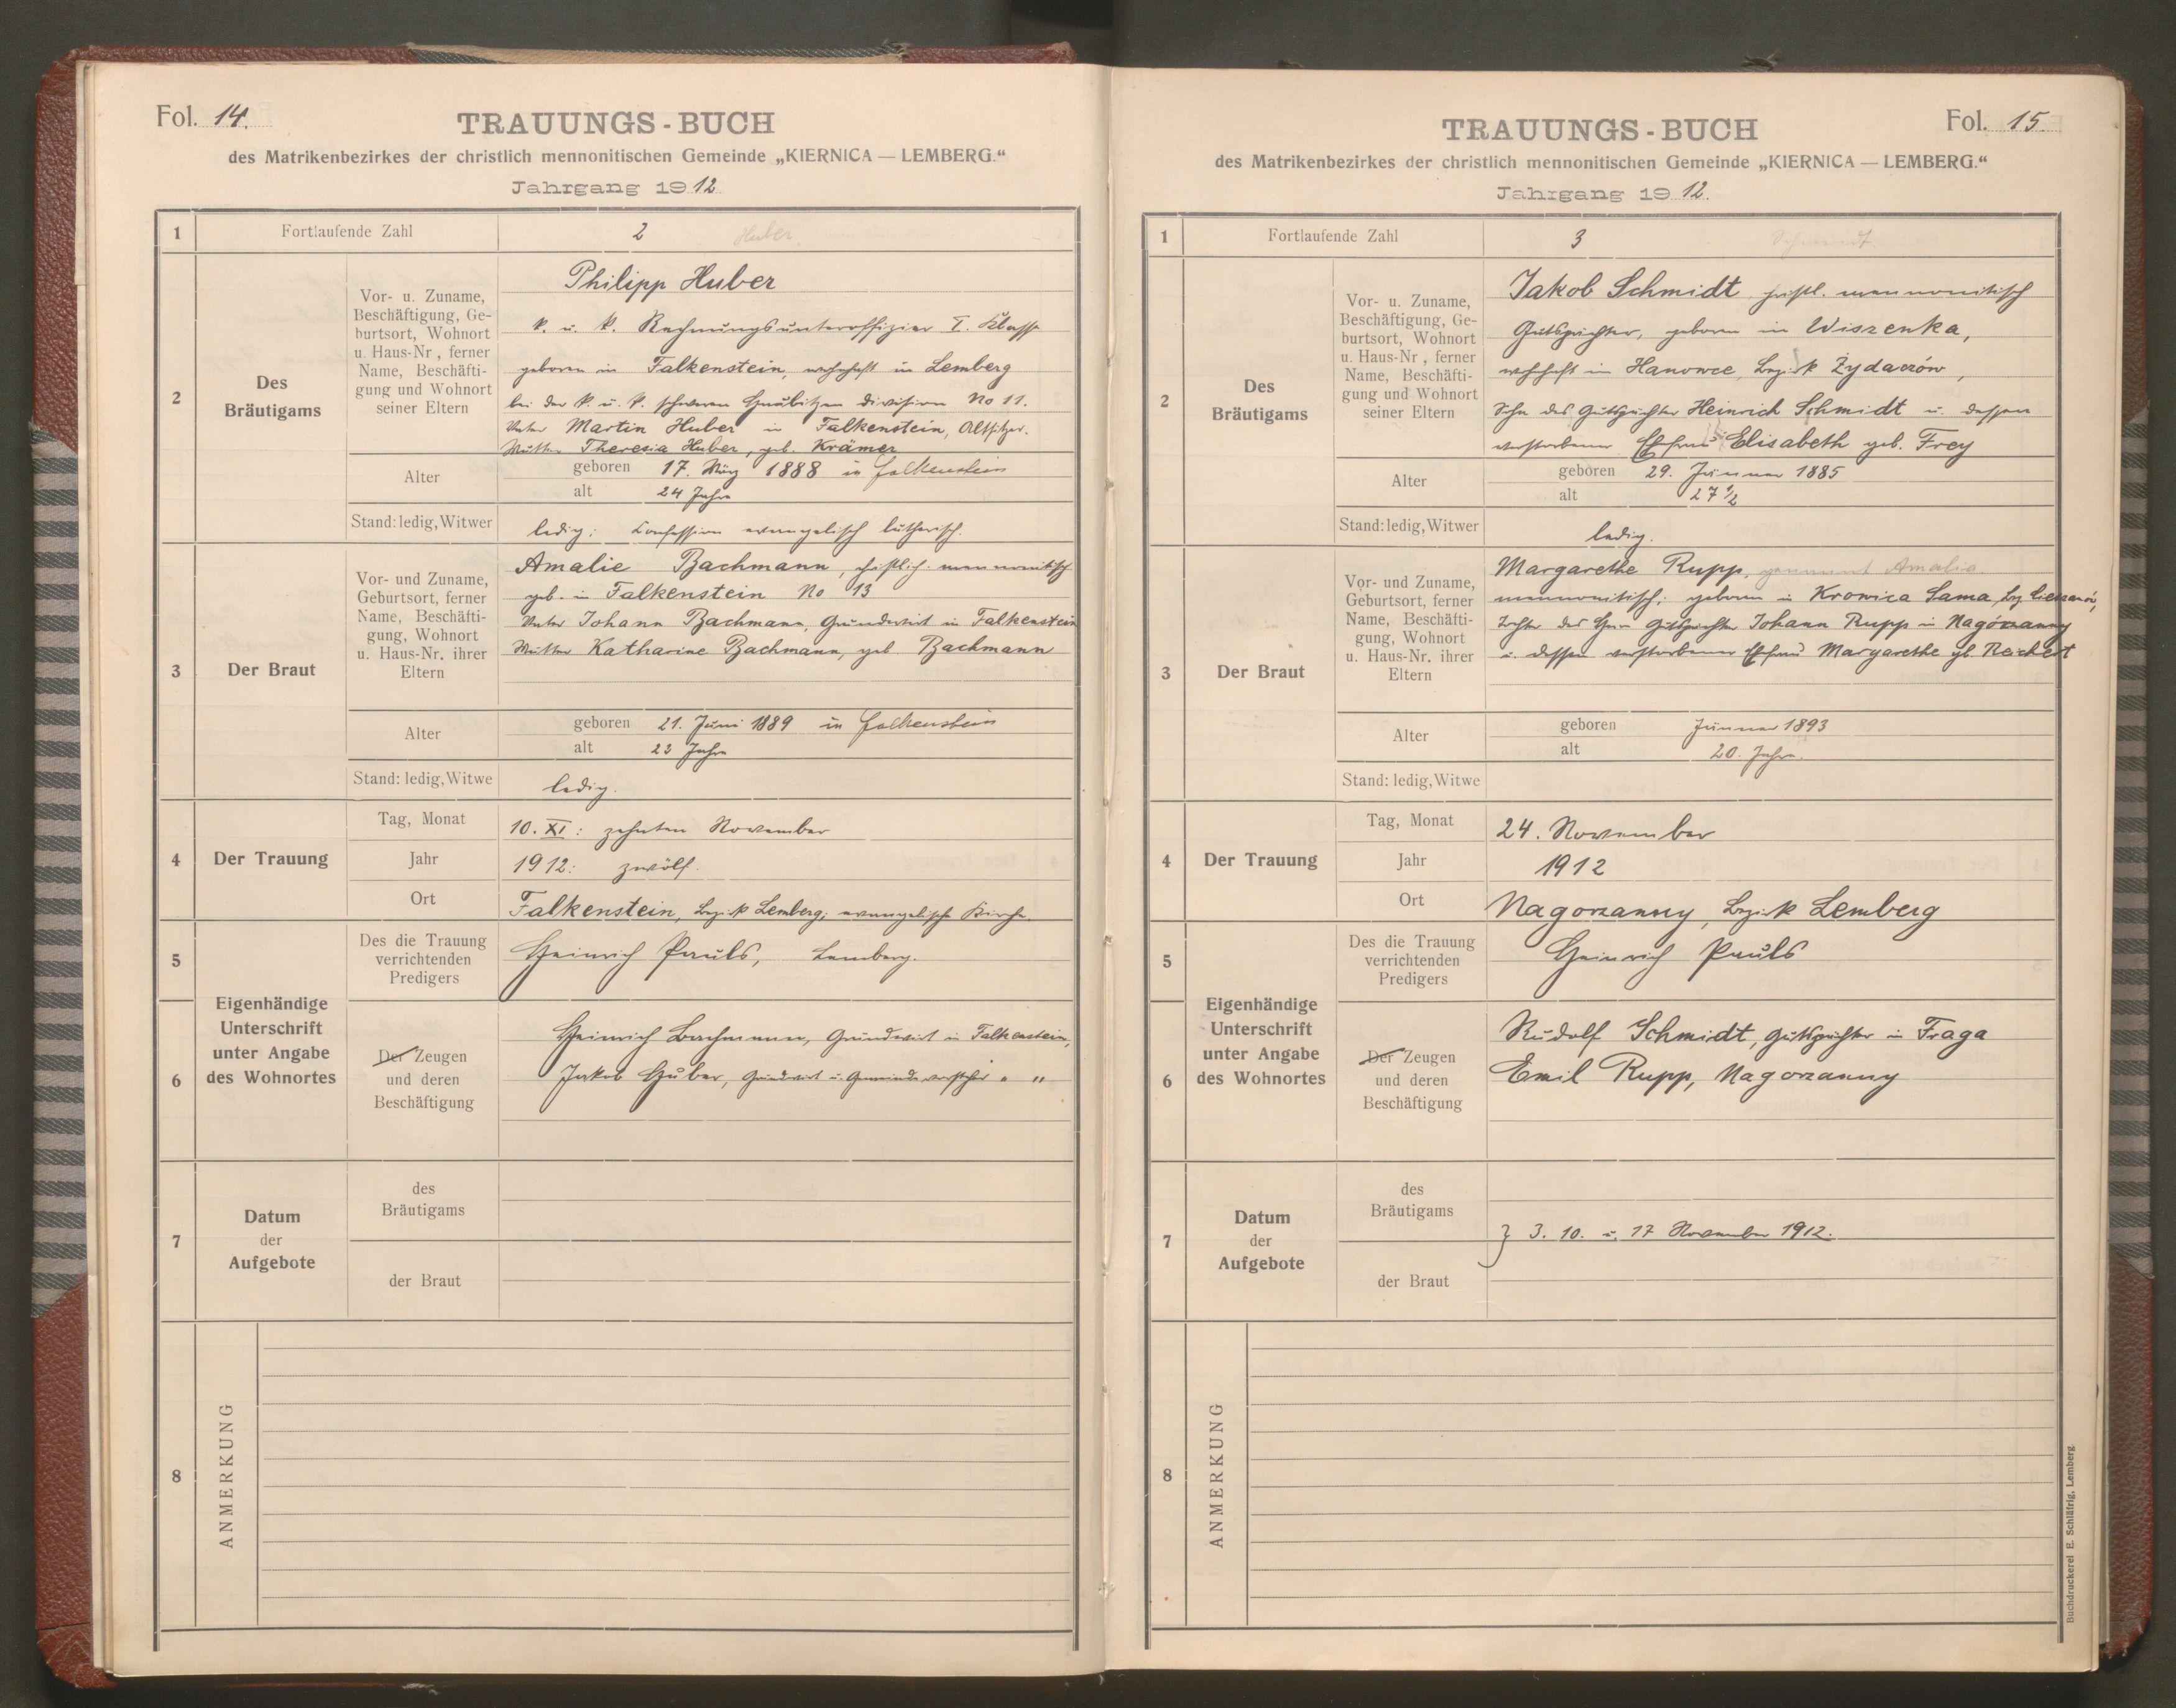 Fol. 14.
TRAUUNGS-BUCH
des Matrikenbezirkes der christlich mennonitischen Gemeinde „KIERNICA — LEMBERG.“
Jahrgang 1912
1
Fortlaufende Zahl
2 Huber.
2
Des
Bräutigams
Vor- u. Zuname,
Beschäftigung, Ge-
burtsort, Wohnort
u. Haus-Nr, ferner
Name, Beschäfti-
gung und Wohnort
seiner Eltern
Philipp Huber
k. u. k. Rechnungsunteroffizier I. Klasse
geboren in Falkenstein, wohnhaft in Lemberg
bei der k. u. k. schweren Haubitzen division No 11.
Vater Martin Huber in Falkenstein, Altsitzer.
Mutter Theresia Huber, geb. Krämer
Alter
geboren 17. März 1888 in Falkenstein
alt 24 Jahre
Stand: ledig, Witwer
ledig; Confession evangelisch lutherisch.
3
Der Braut
Vor- und Zuname,
Geburtsort, ferner
Name, Beschäfti-
gung, Wohnort
u. Haus-Nr. ihrer
Eltern
Amalie Bachmann, christlich-mennonitisch
geb. in Falkenstein No 13
Vater Johann Bachmann, Grundwirt in Falkenstein
Mutter Katharine Bachmann, geb. Bachmann
Alter
geboren 21. Juni 1889 in Falkenstein
alt 23 Jahre
Stand: ledig, Witwe
ledig.
4
Der Trauung
Tag, Monat
10. XI: zehnten November
Jahr
1912: zwölf.
Ort
Falkenstein, Bezirk Lemberg; evangelische Kirche.
5
Eigenhändige
Unterschrift
unter Angabe
des Wohnortes
Des die Trauung
verrichtenden
Predigers
Heinrich Pauls, Lemberg.
6
Der Zeugen
und deren
Beschäftigung
Heinrich Bachmann, Grundwirt in Falkenstein,
Jakob Huber, Grundwirt u. Gemeindevorsteher " "
7
Datum
der
Aufgebote
des
Bräutigams
der Braut
8
ANMERKUNG
Fol. 15.
TRAUUNGS-BUCH
des Matrikenbezirkes der christlich mennonitischen Gemeinde „KIERNICA — LEMBERG.“
Jahrgang 1912.
1
Fortlaufende Zahl
3 Schmidt
2
Des
Bräutigams
Vor- u. Zuname,
Beschäftigung, Ge-
burtsort, Wohnort
u. Haus-Nr, ferner
Name, Beschäfti-
gung und Wohnort
seiner Eltern
Jakob Schmidt christl. mennonitisch
Gutspächter, geboren in Wiszenka,
wohnhaft in Hanowce, Bezirk Żydaczów,
Sohn des Gutspächter Heinrich Schmidt u. dessen
verstorbener Ehefrau Elisabeth geb. Frey
Alter
geboren 29. Jänner 1885
alt 27 1/2
Stand: ledig, Witwer
ledig.
3
Der Braut
Vor- und Zuname,
Geburtsort, ferner
Name, Beschäfti-
gung, Wohnort
u. Haus-Nr. ihrer
Eltern
Margarethe Rupp, genannt Amalia.
mennonitisch; geboren in Krowica Sama, Bez.
Tochter des Herrn Gutspächter Johann Rupp in Nagórzanny
u. dessen verstorbener Ehefrau Margarethe gb. Reichert
Alter
geboren Jänner 1893
alt 20. Jahre.
Stand: ledig, Witwe
4
Der Trauung
Tag, Monat
24. November
Jahr
1912
Ort
Nagorzanny, Bezirk Lemberg
5
Eigenhändige
Unterschrift
unter Angabe
des Wohnortes
Des die Trauung
verrichtenden
Predigers
Heinrich Pauls
6
Der Zeugen
und deren
Beschäftigung
Rudolf Schmidt, Gutspächter in Fraga
Emil Rupp, Nagorzanny
7
Datum
der
Aufgebote
des
Bräutigams
} 3. 10. u. 17 November 1912.
der Braut
8
ANMERKUNG
Buchdruckerei E. Schläfrig, Lemberg.